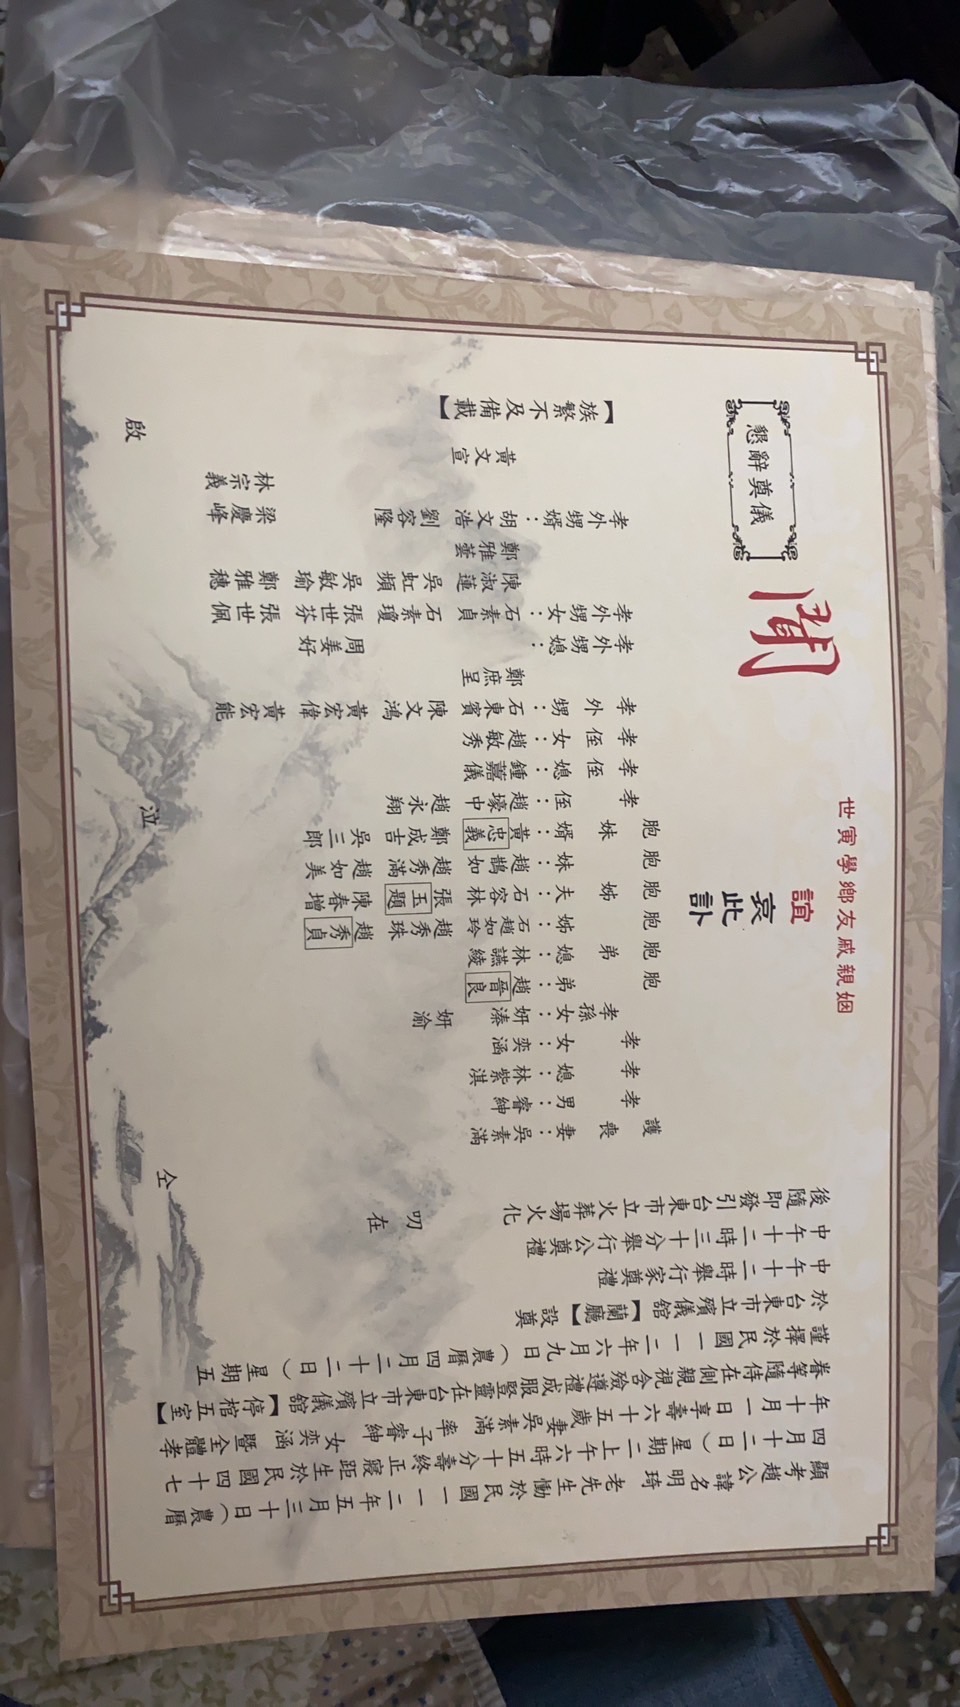 顯考趙公諱名明琦老先生慟於民國一一二年五月三十日（農曆
四月十二日）星期二上午六時五十分壽終正寢距生於民國四十七
年十月一日享壽六十五歲妻吳素滿率子睿紳女奕涵暨全體孝
眷等隨侍在側親視含殮遵禮成服豎靈在台東市立殯儀館【停棺五室】
謹擇於民國一一二年六月九日（農曆四月二十二日）星期五
於台東市立殯儀館【蘭廳】設奠
中午十二時舉行家奠禮
中午十二時三十分舉行公奠禮
後隨即發引台東市立火葬場火化
叨在
世寅學鄉友戚親姻
誼
哀此訃
聞
懇辭奠儀
護喪妻：吳素滿
孝男：睿紳
孝媳：林紫淇
孝女：奕涵
孝孫女：妍溱 妍渝
胞弟：趙晉良
胞弟媳：林讌綾
胞姊：石趙如玲 趙秀珠 趙秀貞
胞姊夫：石容林 張玉題 陳春增
胞妹：趙鵲如 趙秀滿 趙如美
胞妹婿：黃忠義 鄭成吉 吳三郎
孝侄：趙壕中 趙永翔
孝侄媳：鍾嘉儀
孝侄女：趙敏秀
孝外甥：石東賓 陳文鴻 黃宏偉 黃宏能
鄭庶呈
孝外甥媳：周姜好
孝外甥女：石素貞 石素瓊 張世芬 張世佩
陳淑蓮 吳虹頻 吳敏瑜 鄭雅穗
鄭雅芸
孝外甥婿：胡文浩 劉容隆 梁慶峰
林宗義
黃文宣
【族繁不及備載】
仝 泣 啟